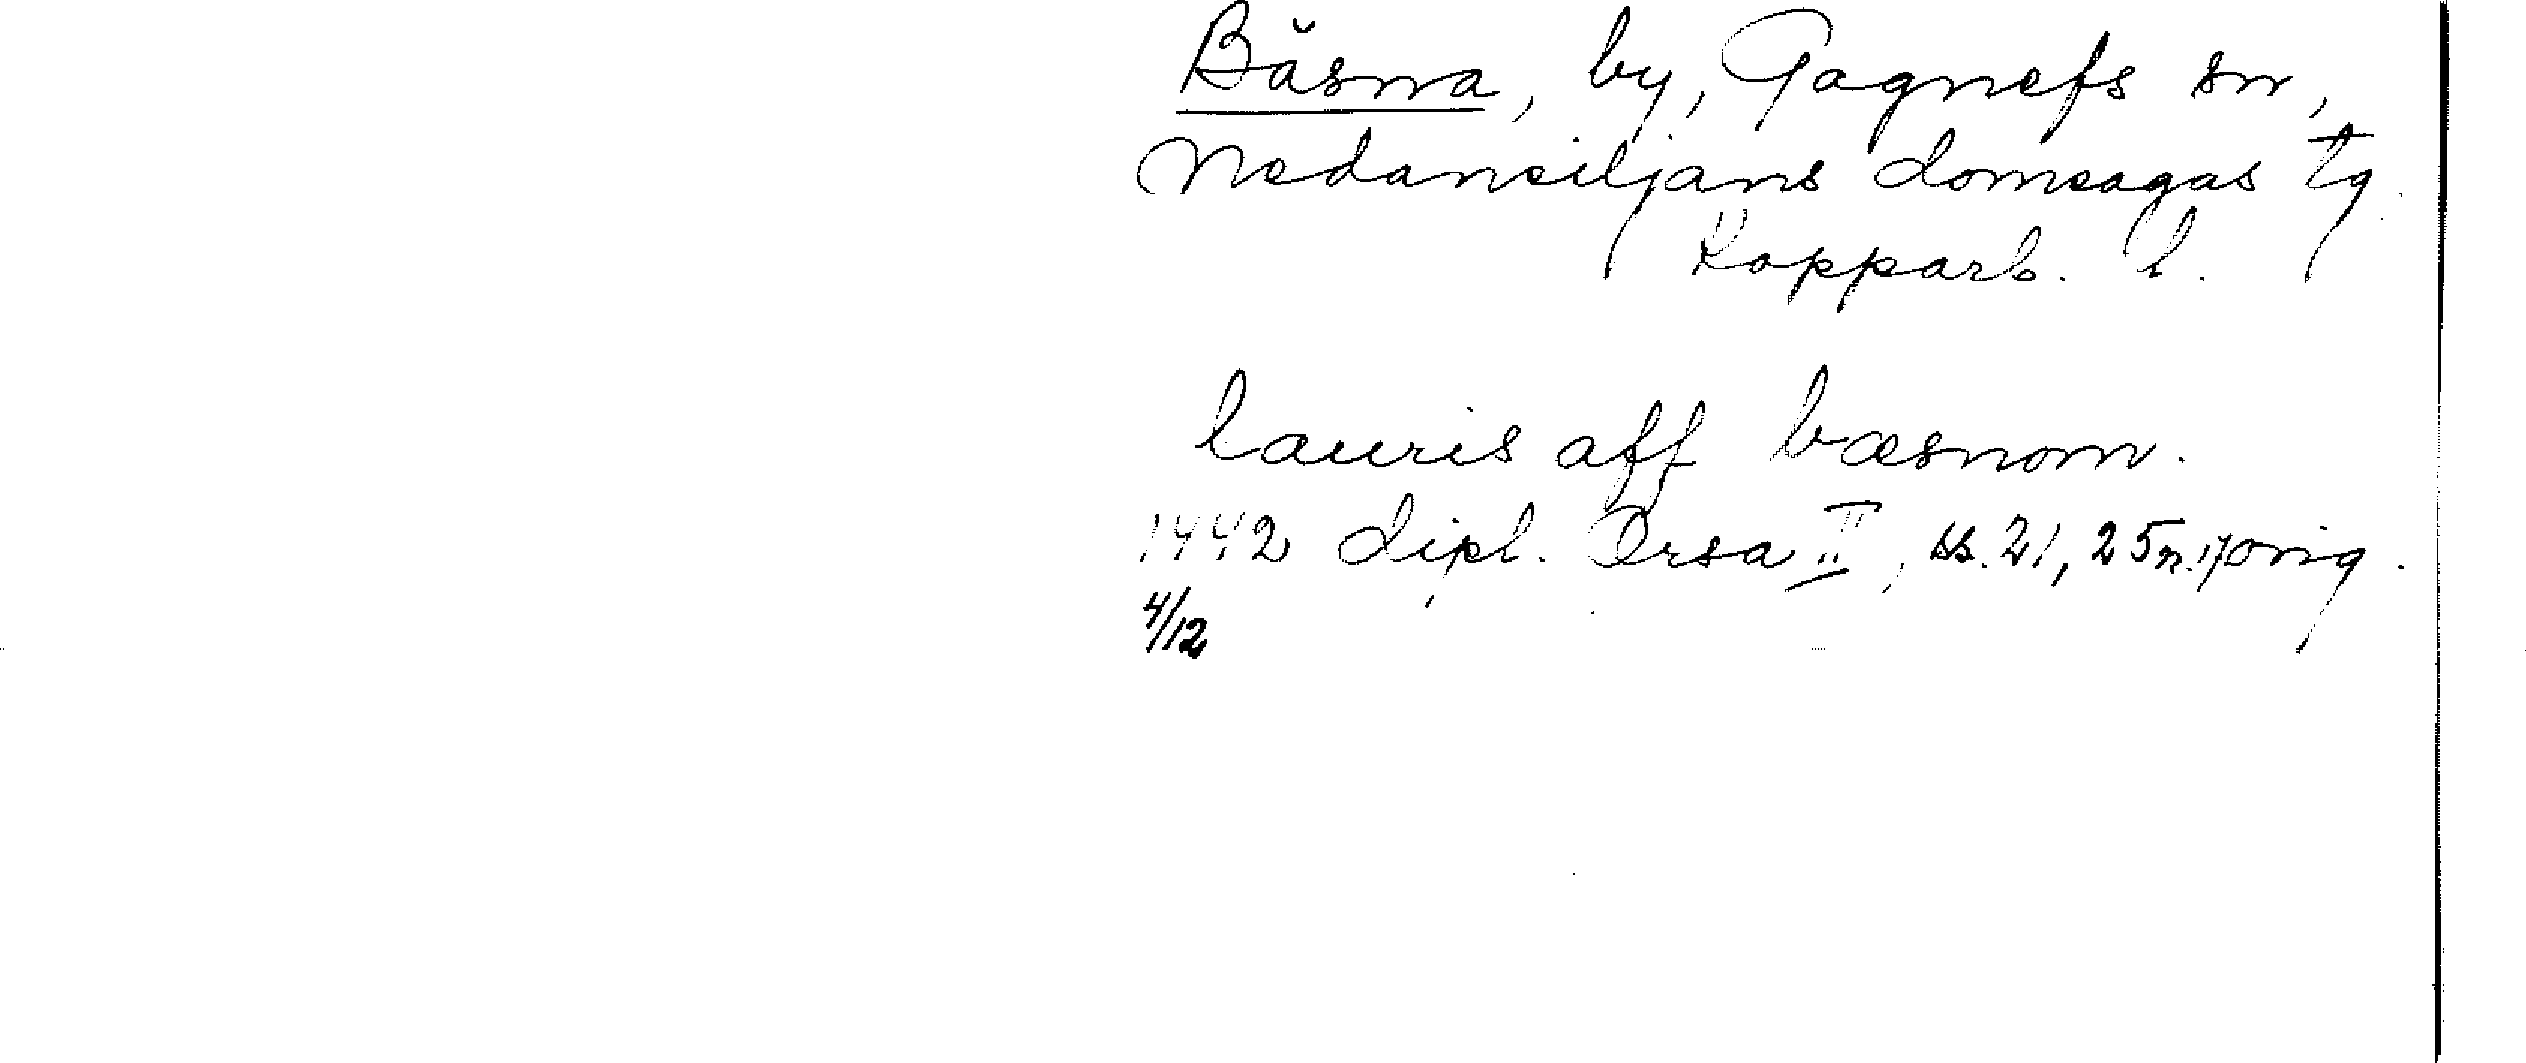 Bäsna, by, Gagnefs sn,
Nedansiljans domsagas tg.
Kopparb. l.
lauris aff bæsnom.
1442 dipl. Orsa II, ss. 21, 25 n. 17 orig.
4/12